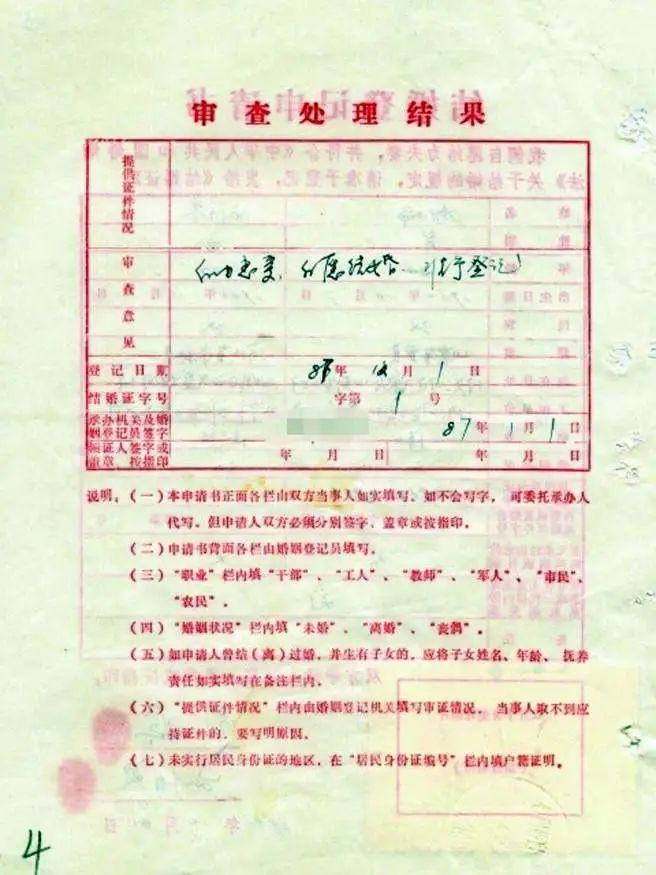 审查处理结果
提供证件情况
审查意见
自愿结婚 准予登记
登记日期
年 月 1 日
结婚证字号
字第 1 号
承办机关及婚姻登记员签字
87 年 1 月 1 日
领证人签字或盖章、按指印
年 月 日
年 月 日
说明:(一)本申请书正面各栏由双方当事人如实填写。如不会写字,可委托承办人
代写。但申请人双方必须分别签字、盖章或按指印。
(二)申请书背面各栏由婚姻登记员填写。
(三)“职业”栏内填“干部”、“工人”、“教师”、“军人”、“市民”、
“农民”。
(四)“婚姻状况”栏内填“未婚”、“离婚”、“丧偶”。
(五)如申请人曾结(离)过婚,并生有子女的,应将子女姓名、年龄、抚养
责任如实填写在备注栏内。
(六)“提供证件情况”栏内由婚姻登记机关填写审证情况,当事人取不到应
持证件的,要写明原因。
(七)未实行居民身份证的地区,在“居民身份证编号”栏内填户籍证明。
4